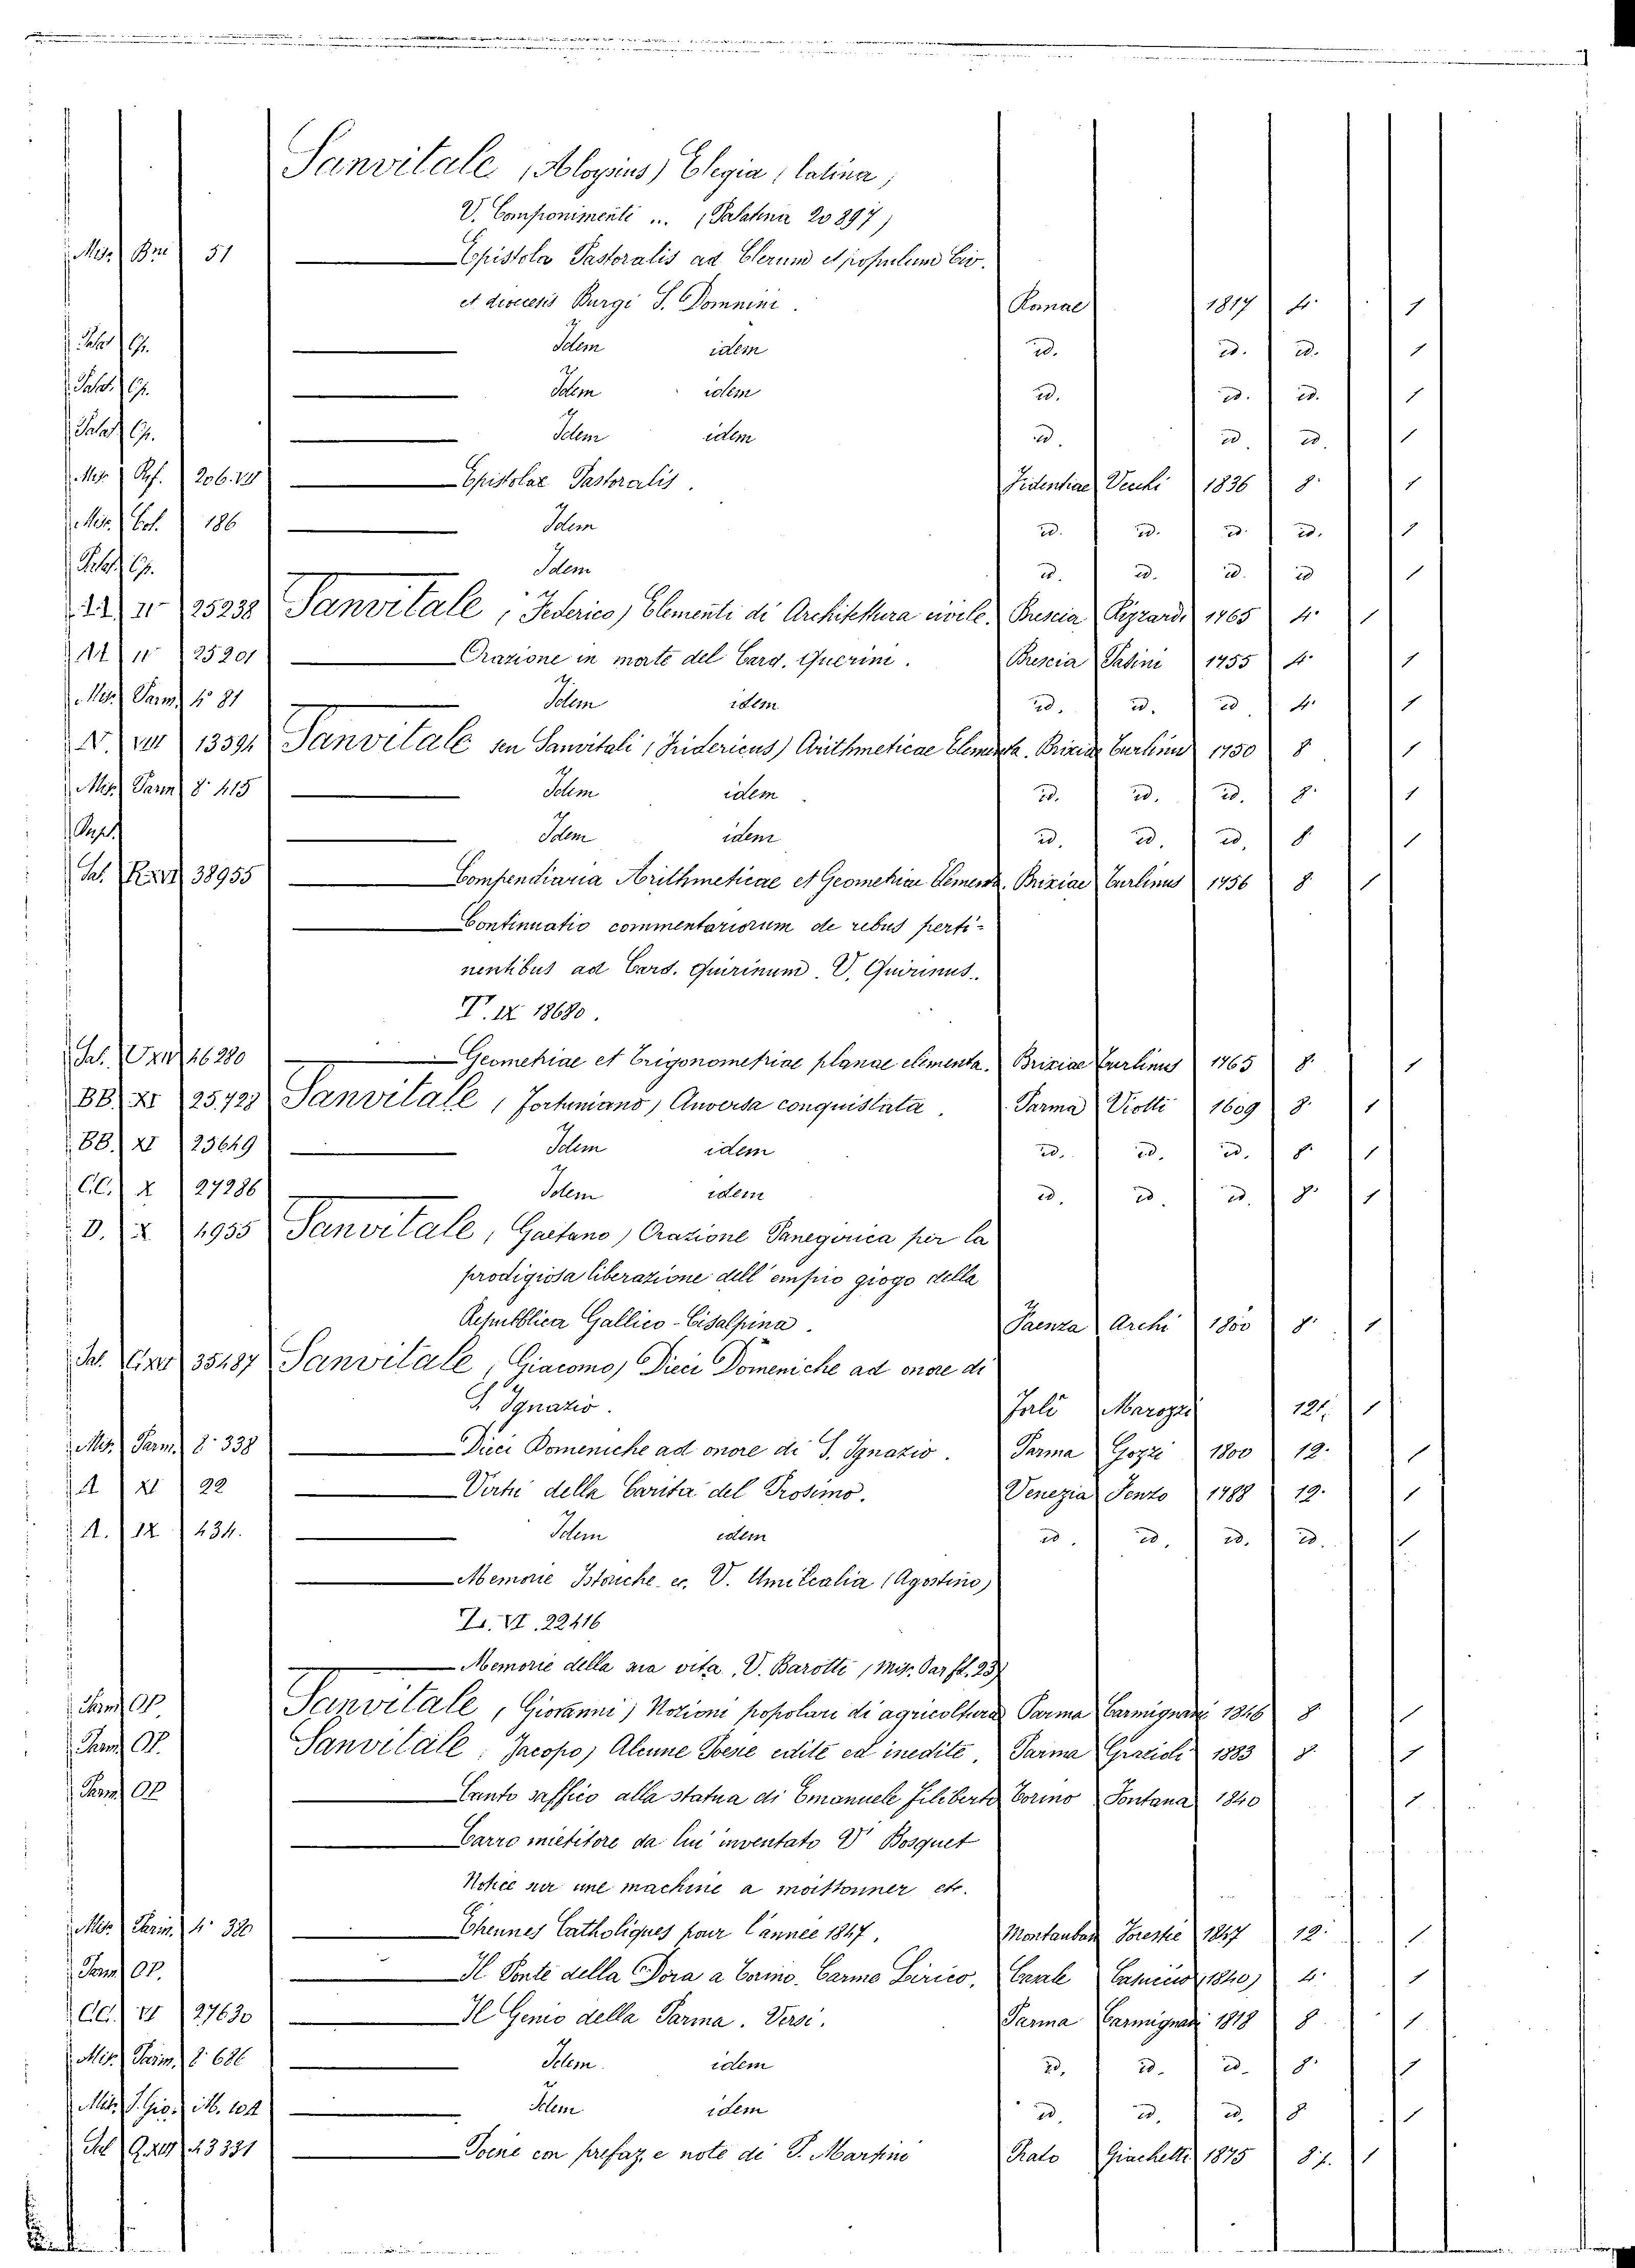 Sanvitale (Aloysius) Elegia (latina)
V. Componimenti ... (Palatina 20897)
Misc. Bre 51 Epistola Pastoralis ad Clerum et populum Civ.
et dioecesis Burgi S. Domnini. Romae 1817 4. 1
Palat. Op. Idem idem id. id. id. 1
Palat. Op. Idem idem id. id. id. 1
Palat. Op. Idem idem id. id. id. 1
Misc. Rof. 206. Epistolae Pastoralis. Fidentiae Vecchi 1836 8. 1
Misc. Col. 186 Idem id. id. id. id. 1
Palat. Op. Idem id. id. id. id 1
25238 Sanvitale (Federico) Elementi di Architettura civile. Brescia Rizzardi 1765 4. 1
25201 Orazione in morte del Card. Querini. Brescia Pasini 1755 4. 1
Misc. Parm. 4o 81 Idem idem id. id. id. 4. 1
V. VIII 13391 Sanvitale seu Sanvitali (Fridericus) Arithmeticae Elementa. Brixiae Turlinus 1750 8 1
Misc. Parm 8. 415 Idem idem id. id. id. 8. 1
Idem idem id. id. id. 8. 1
Sal. 38955 Compendiaria Arithmeticae et Geometriae Elementa. Brixiae Turlinus 1756 8. 1
Continuatio commentariorum de rebus perti-
nentibus ad Card. Quirinum. V. Quirinus.
T. IX 18680.
Sal. 46280 Geometriae et Trigonometriae planae elementa. Brixiae Turlinus 1765 8. 1
BB. XI 25728 Sanvitale (Fortuniano) Anversa conquistata. Parma Viotti 1609 8. 1
BB. XI 25649 Idem idem id. id. id. 8. 1
CC. X 27286 Idem idem id. id. id. 8. 1
D. X 4955 Sanvitale (Gaetano) Orazione Panegirica per la
prodigiosa liberazione dell'empio giogo della
Repubblica Gallico-Cisalpina. Faenza Archi 1800 8. 1
Sal. 35487 Sanvitale (Giacomo) Dieci Domeniche ad onore di
S. Ignazio. Forlì Marozzi 12. 1
Misc. Parm. 8. 338 Dieci Domeniche ad onore di S. Ignazio. Parma Gozzi 1800 12. 1
A XI 22 Virtù della Carità del Prosimo. Venezia Pento 1788 12. 1
A. IX 434. Idem idem id. id. id. id. 1
Memorie Istoriche ec. V. Umiltalia (Agostino)
Z. VI. 22416
Memorie della sua vita. V. Barotti (Misc. Par f. 23)
Parm. Op. Sanvitale (Giovanni) Nozioni popolari di agricoltura Parma Carmignani 1846 8 1
Parm. Op. Sanvitale (Jacopo) Alcune Poesie edite ed inedite. Parma Grazioli 1883 8. 1
Parm. Op. Canto saffico alla statua di Emanuele Filiberto Torino Fontana 1840 1
Carro mietitore da lui inventato V. Bosquet
Notice sur une machine a moissonner etc.
Misc. Parm. 4. 380 Etrennes Catholiques pour l'année 1847. Montauban Forestie 1847 12. 1
Parm. Op. Il Ponte della Dora a Torino. Carme Lirico. Casale Casuccio (1840) 4. 1
CC. VI 27630 Il Genio della Parma. Versi. Parma Carmignani 1818 8. 1
Misc. Parm. 8. 686 Idem idem id. id. id. 8. 1
Misc. S. Gio. M. 104 Idem idem id. id. id. 8 1
Sal. 43331 Poesie con prefaz. e note di P. Martini Prato Giachetti 1875 8. f. 1